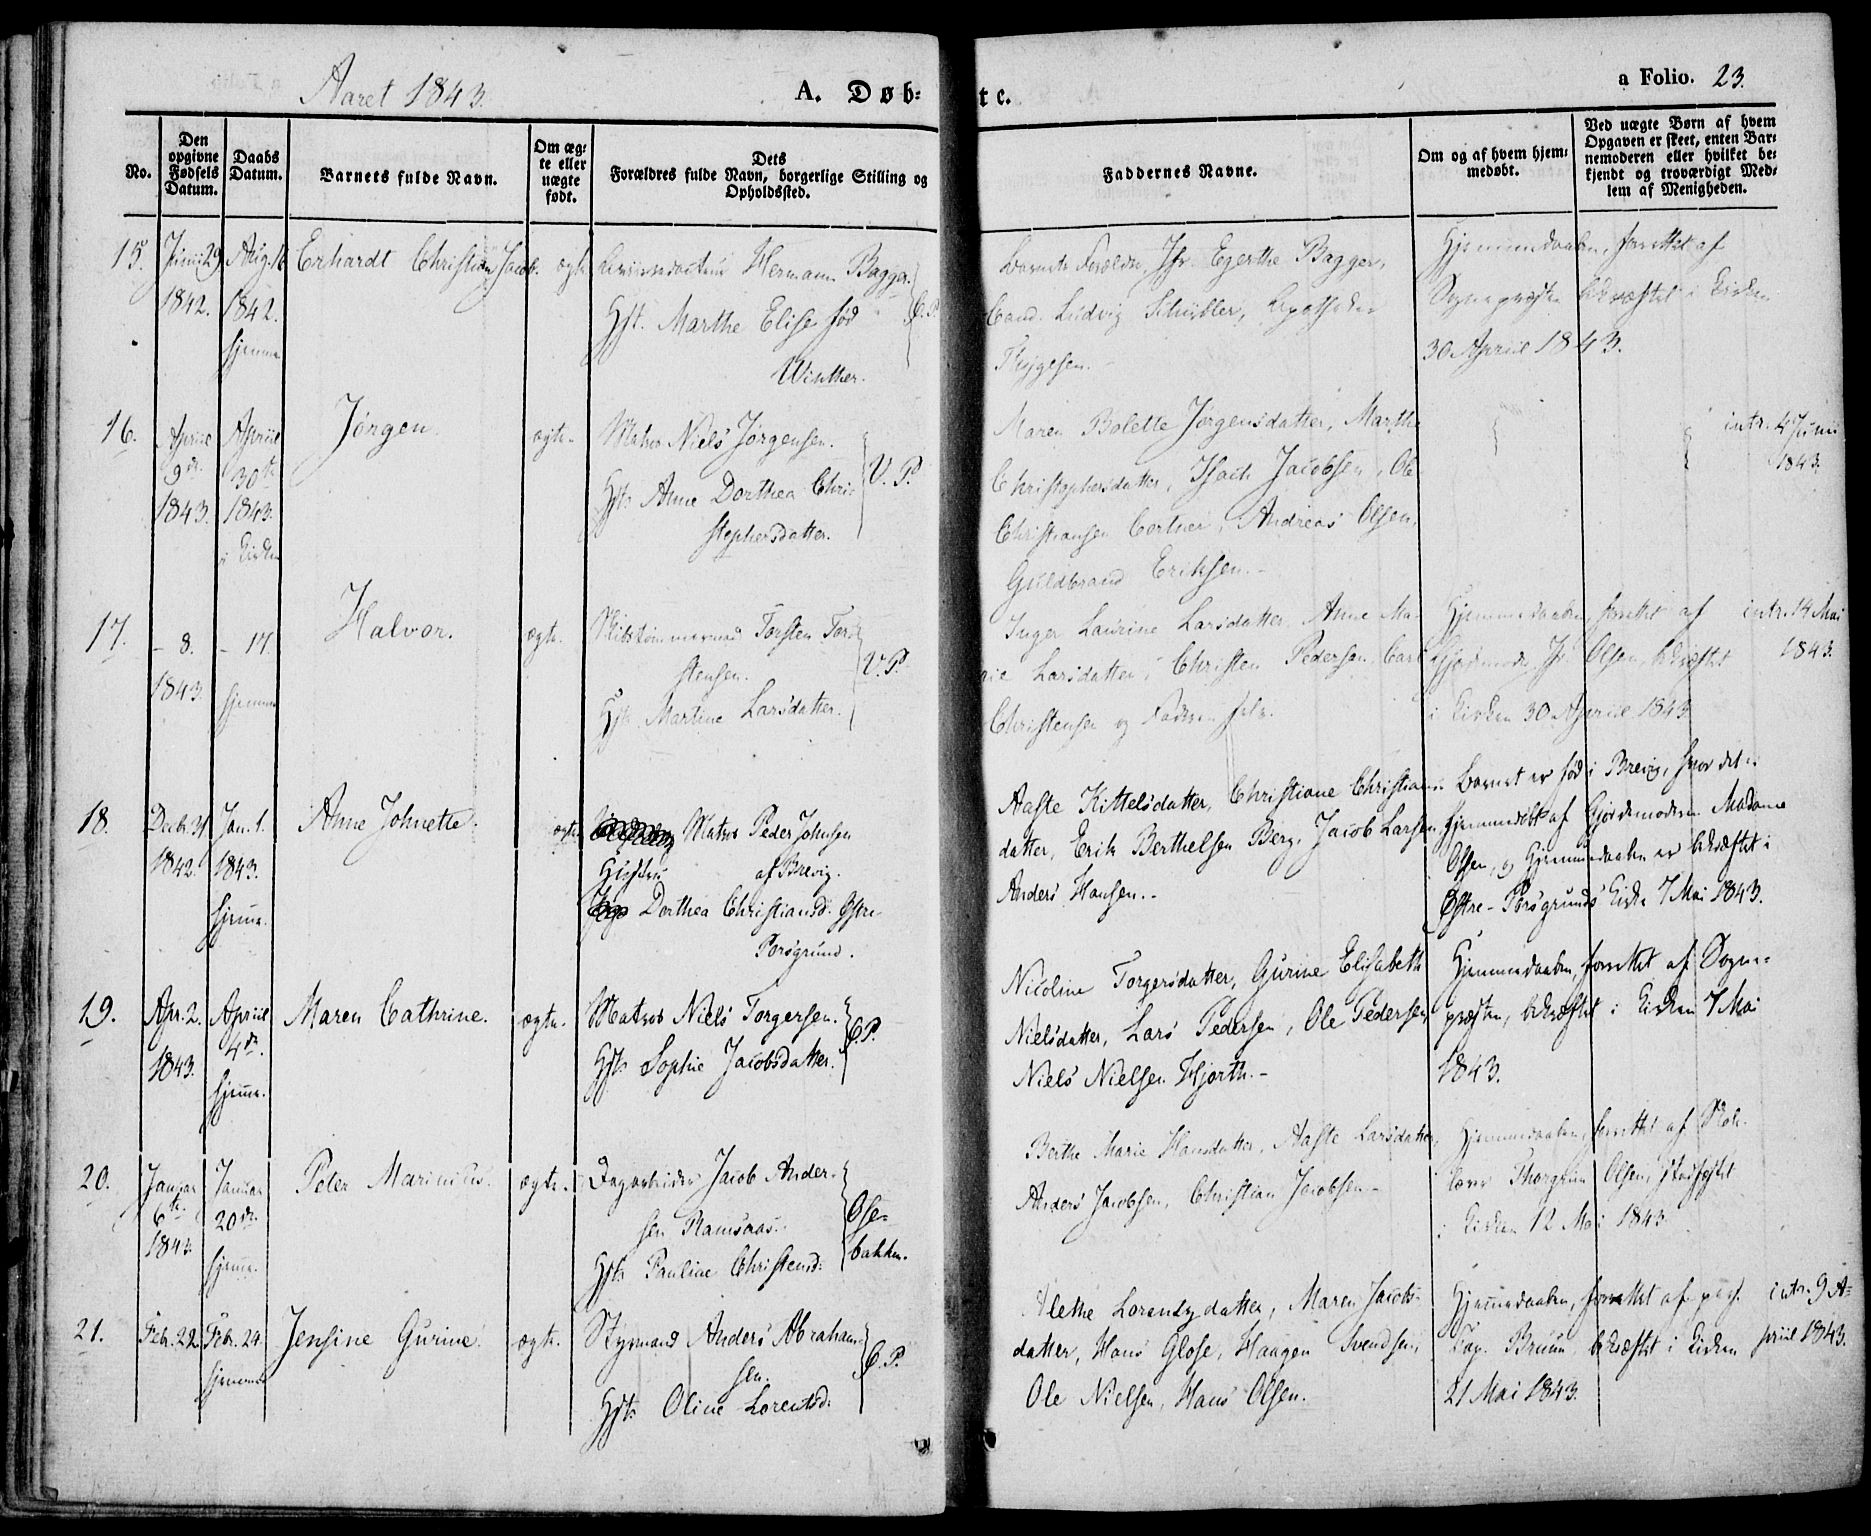 Aaret 1843.
A. Døb-
te.
a Folio. 23.
No.
Den opgivne Fødsels Datum.
Daabs Datum.
Barnets fulde Navn.
Om æg-
te eller
uægte
født.
Dets
Forældres fulde Navn, borgerlige Stilling og
Opholdssted.
Faddernes Navne.
Om og af hvem hjem-
medøbt.
Ved uægte Børn af hvem
Opgaven er skeet, enten Bar-
nemoderen eller hvilket be-
kjendt og troværdigt Med-
lem af Menigheden.
15. Junii 29 Aug. 16 Erhardt Christian Jacob. ægte Hermann Bagger
1842. 1842. Hst. Marthe Elise fød
hjemme Winther.
Barnets Forældre, Jfr. Egerthe Bagger,
Cand. Ludvig Schübler, Apotheker
Thygesen.
Hjemmedaaben, forrettet af
Sognepræsten bekræftet i Kirken
30 Apriil 1843.
16. Apriil Apriil Jørgen. ægte. Matros Niels Jørgensen.
9de 30te Hst. Anne Dorthea Chri- V. P.
1843. 1843. stophersdatter.
i Kirken
Maren Bolette Jørgensdatter, Marthe
Christophersdatter, Isach Jacobsen, Ole
Christiansen Cortner, Andreas Olsen,
Guldbrand Eriksen.-
intr. 4 Junii
1843.
17. - 8. - 17. Halvor. ægte. Skibstømmermand Torsten Tor-
1843. hjemme stensen. V. P.
Hst. Martine Larsdatter.
Inger Laurine Larsdatter, Anne Ma-
rie Larsdatter, Christen Pedersen, Carl
Christensen og Faderen selv.
Hjemmedaaben, forrettet af
Gjordmoder Olsen, bekræftet
i Kirken 30 Apriil 1843
intr. 14 Mai
1843.
18. Decbr. 31 Jan. 1. Anne Johnette. ægte. Matros Peder Johnsen
1842. 1843. Hustru af Brevig.
hjemme. Dorthea Christiansd. Østre-
Porsgrund.
Aaste Kittelsdatter, Christiane Christians-
datter, Erik Berthelsen Berg, Jacob Larsen,
Anders Hansen.-
Barnet er født i Brevig, hvor det er
hjemmedøbt af Gjordemoderen Madame
Olsen, og Hjemmedaaben er bekræftet i
Østre-Porsgrunds Kirke 7 Mai 1843.
19. Apr. 2. Apriil Maren Cathrine. ægte. Matros Niels Torgersen.
1843. 4de. Hst. Sophie Jacobsdatter.
hjemme.
Nicoline Torgersdatter, Gurine Elisabeth
Nielsdatter, Lars Pedersen, Ole Pedersen,
Niels Nielsen Hjorth.-
Hjemmedaaben, forrettet af Sogne-
præsten, bekræftet i Kirken 7 Mai
1843.
20. Januar Januar Peter Marinius. ægte. Dagarbeider Jacob Ander-
6te 20de sen Ramsaas. Ose-
1843. hjemme. Hst. Pauline Christensd. bakken.
Berthe Marie Hansdatter, Aaste Larsdatter,
Anders Jacobsen, Christian Jacobsen-
Hjemmedaaben, forrettet af Skole-
lærer Thorgrim Olsen, stadfæstet
i Kirken 12 Mai 1843.
21. Febr. 22. Febr. 24. Jensine Gurine. ægte. Styrmand Anders Abraham-
hjemme sen.
Hst. Oline Lorentsd.
Alethe Lorentzdatter, Maren Jacobs-
datter, Hans Glose, Haagen Svendsen,
Ole Nielsen, Hans Olsen.
Hjemmedaaben, forrettet af pers.
Cap. Bruun, bekræftet i Kirken
21 Mai 1843.
intr. 9 A-
priil 1843.